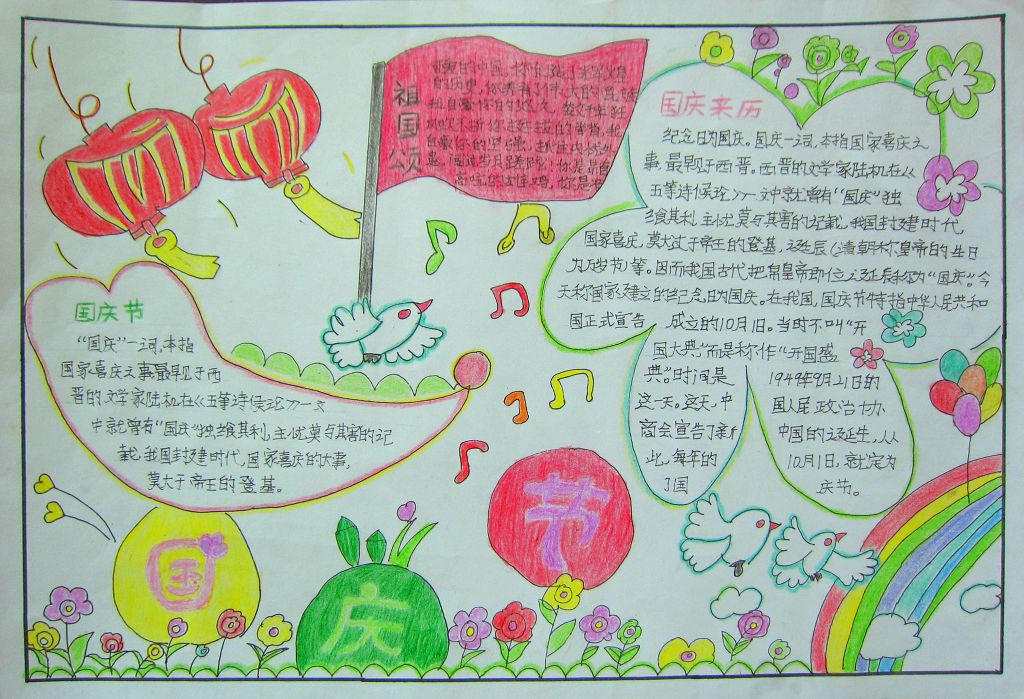 祖国颂
国庆来历
纪念日为国庆。国庆一词，本指国家喜庆之
事、最早见于西晋。西晋的文学家陆机在《
五等诗侯论》一文中就曾有“国庆”独
飨其利，主忧莫与其害的记载，我国封建时代、
国家喜庆，莫大过于帝王的登基，诞辰(清朝称皇帝的生日
为万岁节)等。因而我国古代把皇帝即位、诞辰称为“国庆”。今
天称国家建立的纪念日为国庆。在我国，国庆节特指中华人民共和
国正式宣告 成立的10月1日。当时不叫“开
国大典”而是称作“开国盛
典。”时间是 1949年9月21日的
这一天。这天，中 国人民政治协
商会宣告了新 中国的诞生，从
此，每年的 10月1日，就定为
了国 庆节。
国庆节
“国庆”一词，本指
国家喜庆之事最早见于西
晋的文学家陆机在《五等诗侯论》一文
中就曾有“国庆”独飨其利，主忧莫与其害的记
载，我国封建时代，国家喜庆的大事，
莫大于帝王的登基。
国
庆
节